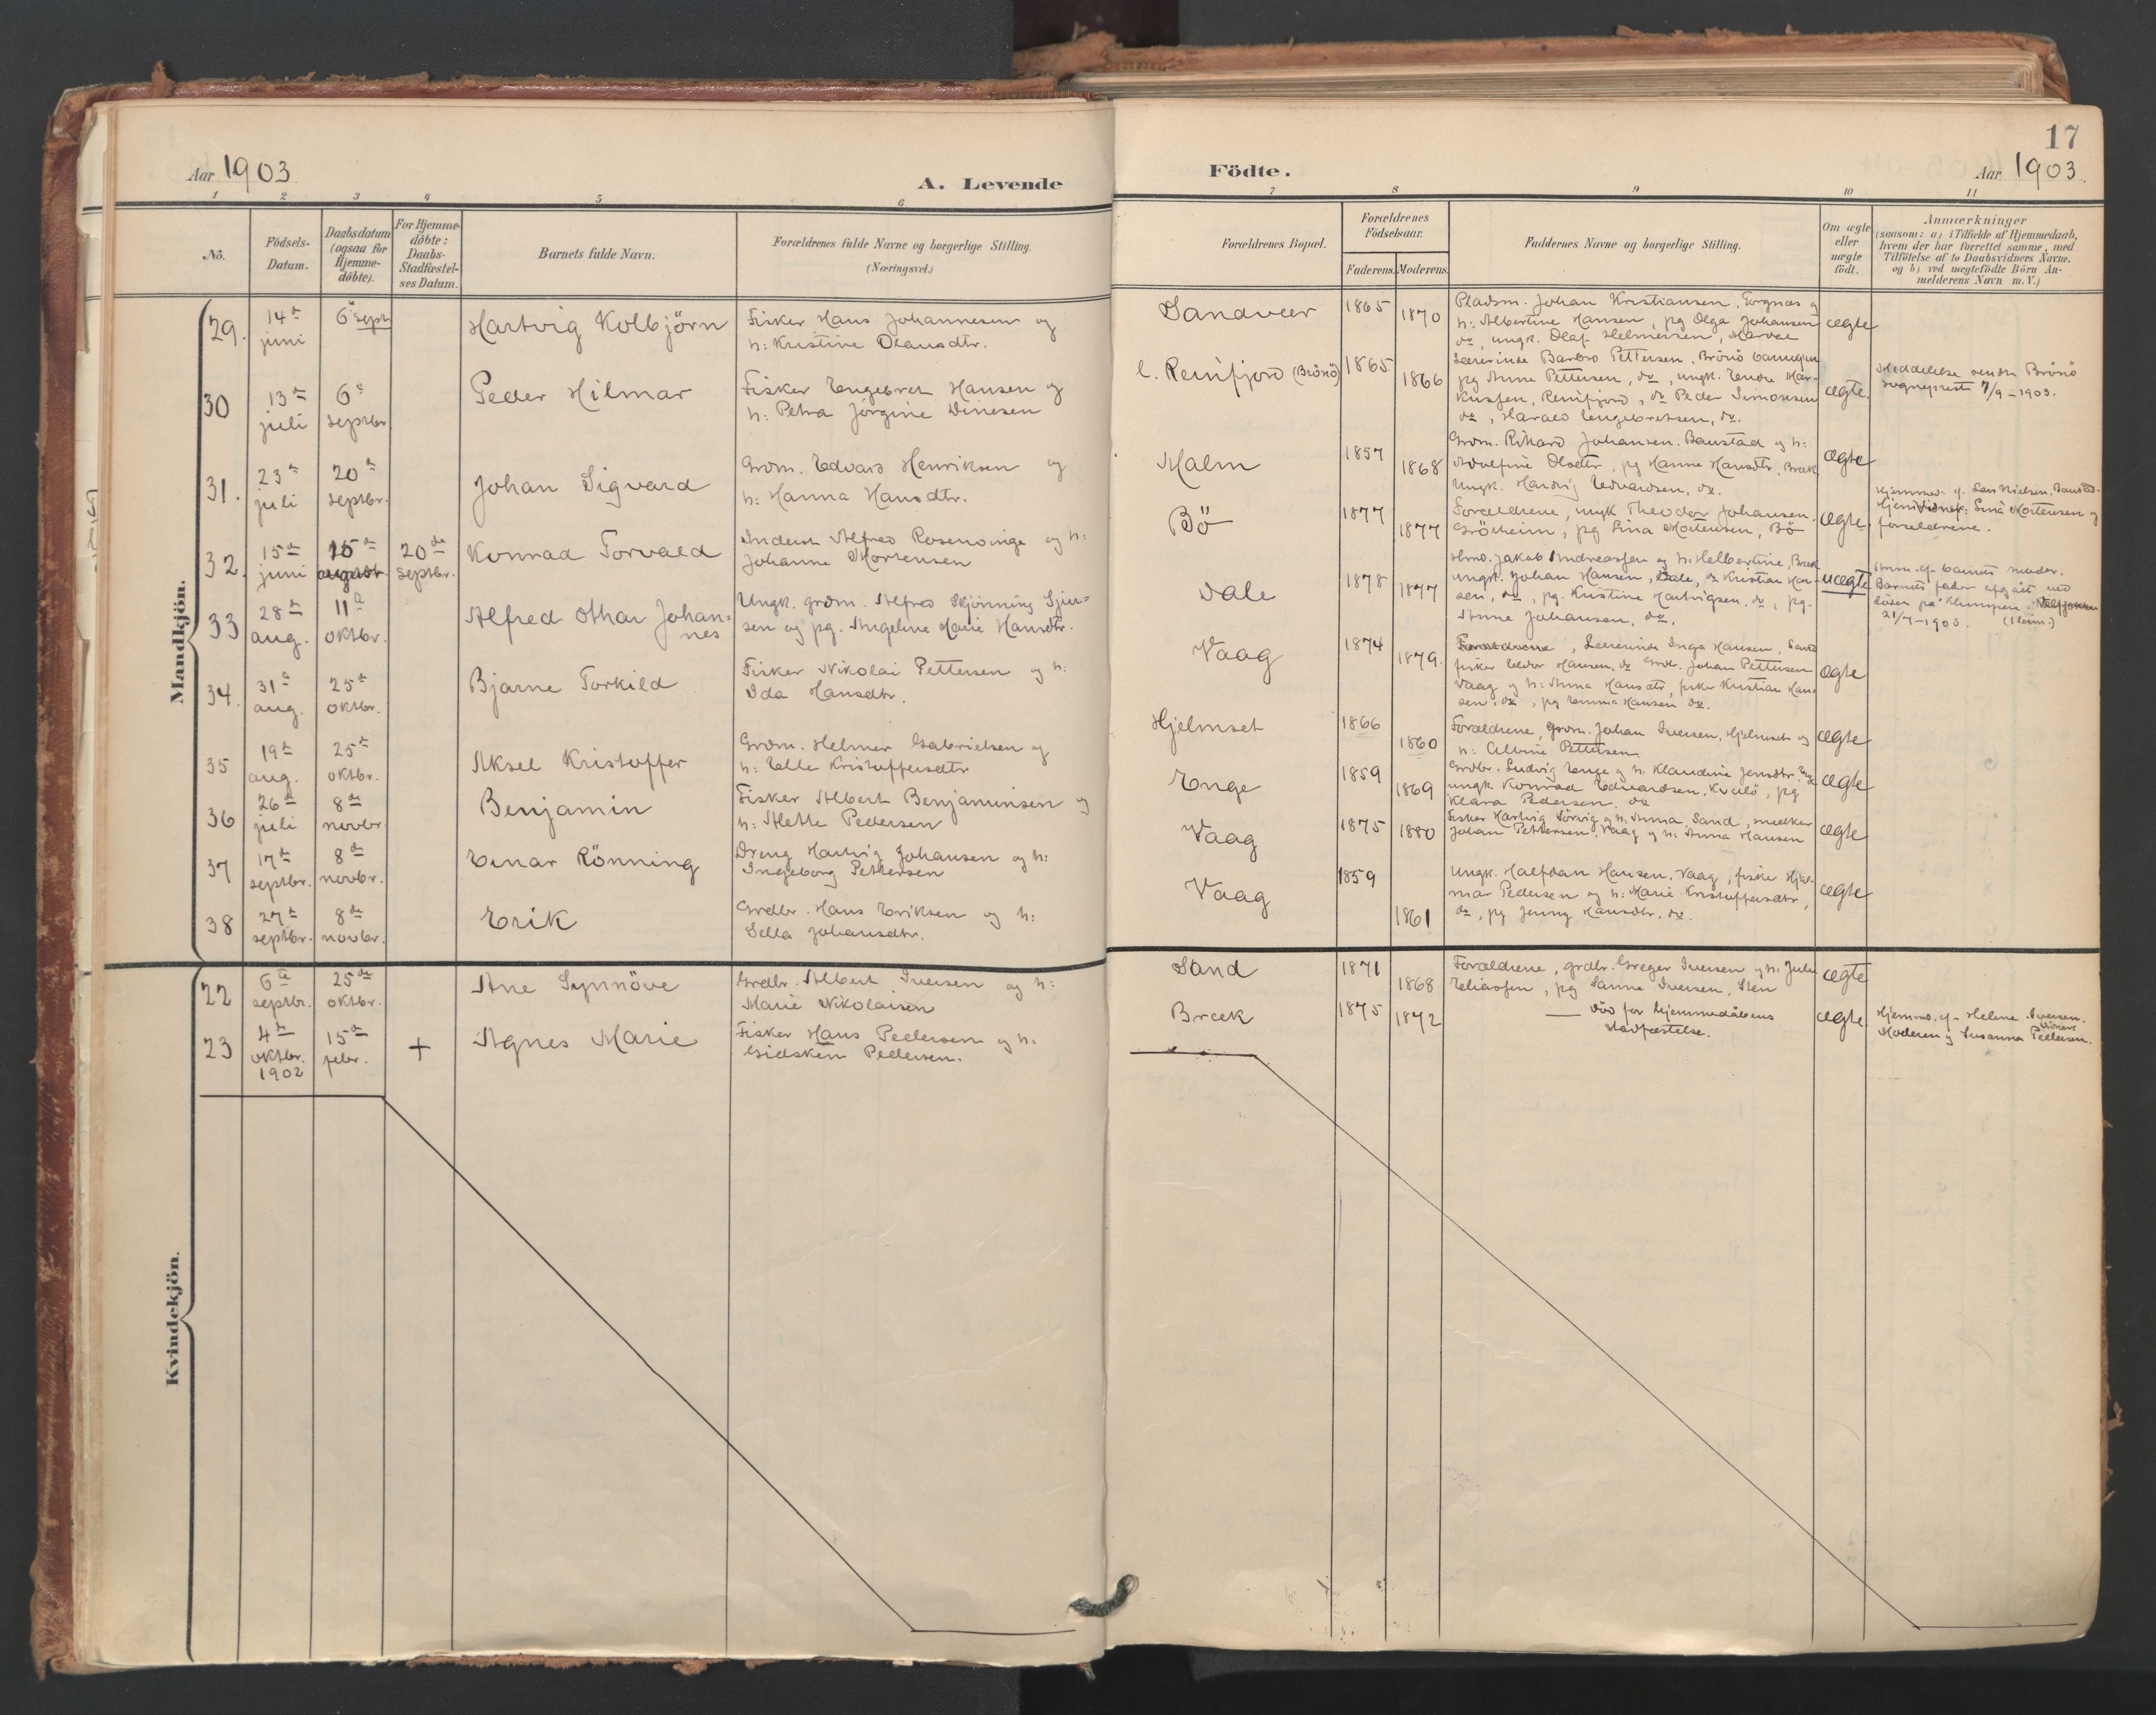 Aar 1903.
A. Levende
1 2 3 4 5 6
Nö.
Födsels-
Datum.
Daabsdatum
(ogsaa for
Hjemme-
döbte).
For Hjemme-
döbte:
Daabs-
Stadfæstel-
ses Datum.
Barnets fulde Navn.
Forældrenes fulde Navne og borgerlige Stilling.
(Næringsvei.)
Mandkjön.
29.
14de
juni
6 Sept
Hartvig Kolbjörn
Fisker Hans Johannesen og
h: Kristine Olausdtr.
30
13de
juli
6te
septbr
Peder Hilmar
Fisker Engebret Hansen og
h: Petra Jörgine Dinesen
31.
23de
juli
20de
septbr.
Johan Sigvard
Grdm. Edvard Henriksen og
h: Hanna Hansdtr.
32.
15de
juni
15de
august
20de
septbr.
Konrad Torvald
Inderst Alfred Rosenvinge og h:
Johanne Mortensen
33
28de
aug.
11te
oktbr.
Alfred Othar Johan-
nes
Ungk. grdm. Alfred Skjönning
sen og pg. Angeline Marie Hansdtr.
34.
31te
aug.
25de
oktbr.
Bjarne Torkild
Fisker Nikolai Pettersen og h:
Ida Hansdtr.
35
19de
aug.
25de
oktbr.
Aksel Kristoffer
Grdm. Helmer Gabrielsen og
h: Elle Kristoffersdtr
36
26de
juli
8de
novbr.
Benjamin
Fisker Albert Benjaminsen og
h: Mette Pedersen
37
17de
septbr.
8de
novbr.
Einar Rönning
Dreng Hartvig Johansen og h:
Ingeborg Pettersen
38
27de
septbr.
8de
novbr.
Erik
Grdbr. Hans Eriksen og h:
Sella Johansdtr.
Kvindekjön.
22
6te
septbr.
25de
oktbr.
Ane Synnöve
Grdbr. Albert Iversen og h:
Marie Nikolaisen
23
4de
oktbr.
1902
15de
febr.
+
Agnes Marie
Fisker Hans Pedersen og h:
Gidsken Pedersen.
17
Födte.
Aar 1903.
7 8 9 10 11
Forældrenes Bopæl.
Forældrenes
Födselsaar.
Faderens. Moderens.
Faddernes Navne og borgerlige Stilling.
Om ægte
eller
uægte
födt.
Anmærkninger
(saasom: a) i Tilfælde af Hjemmedaab,
hvem der har forrettet samme, med
Tilföielse af to Daabsvidners Navne.
og b) ved uægtefödte Börn An-
melderens Navn m.V.)
Sandvær
1865
1870
Pladsm. Johan Kristiansen, Torgnæs og
h: Albertine Hansen, pg Olga Johansen
do, ungk. Olaf Helmersen,
ægte
l. Reinfjord (Brönö)
1865
1866
Lærerinde Barbro Pettersen, Brönö
pg Anne Pettersen, do, ungk. Endre Mar-
kussen, Reinfjord, do Peder Simonsen
do, Harald Engebretsen, do.
ægte.
Meddelelse sendt Brönö
sogneprest 7/9-1903.
Malm
1857
1868
Grdm. Rikard Johansen, Baustad og h:
Adolfine Olsdtr, pg Hanne Hansdtr, Bræk
Ungk. Hartvig Edvardsen, do.
ægte
Bö
1877
1877
Forældrene, ungk Theodor Johansen,
Grönheim, pg Lina Mortensen, Bö
ægte.
Hjemmed. af Lars Nielsen,
Vidner: Lina Mortensen og
forældrene.
Dale
1878
1877
Grdm. Jakob Andreassen og h: Helbertine, Bræk
ungk. Johan Hansen, Dale, do Kristian Han-
sen, do, pg. Kristine Hartvigsen, do, pg.
Anne Johansen, do.
uægte
Anm. af barnets moder.
Barnets fader afgaatt ved
döden paa
21/7-1903.
Vaag
1874
1879.
Forældrene, Lærerinde Inga Hansen, Sand
fisker Peder Hansen, do Grdbr. Johan Pettersen
Vaag og h: Anna Hansdtr, fisker Kristian Han-
sen, do, pg Emma Hansen do.
ægte
Hjelmset
1866
1860
Forældrene, grdm. Johan Iversen, Hjelmset og
h: Albine Pettersen
ægte
Enge
1859
1869
Grdbr. Ludvig Enge og h. Klaudine Jensdtr. Enge
ungk Konrad Edvardsen, Kvalö, pg
Klara Pedersen, do
ægte
Vaag
1875
1880
Fisker Hartvig Sörvig og h: Anna, Sand, snedker
Johan Pettersen, Vaag og h: Anna Hansen
ægte
Vaag
1859
1861
Ungk. Halfdan Hansen, Vaag, fisker Hjal-
mar Pedersen og h: Marie Kristoffersdtr,
do, pg Jenny Hansdtr, do.
ægte
Sand
1871
1868
Forældrene, grdbr. Greger Iversen og h: Julie
Eliassen, pg Sanne Iversen, Sten
ægte
Bræk
1875
1872
Död for hjemmedaabens
stadfæstelse.
ægte.
Hjemmed. af Helene Iversen.
Vidner:
Moderen og Susanna Pedersen.